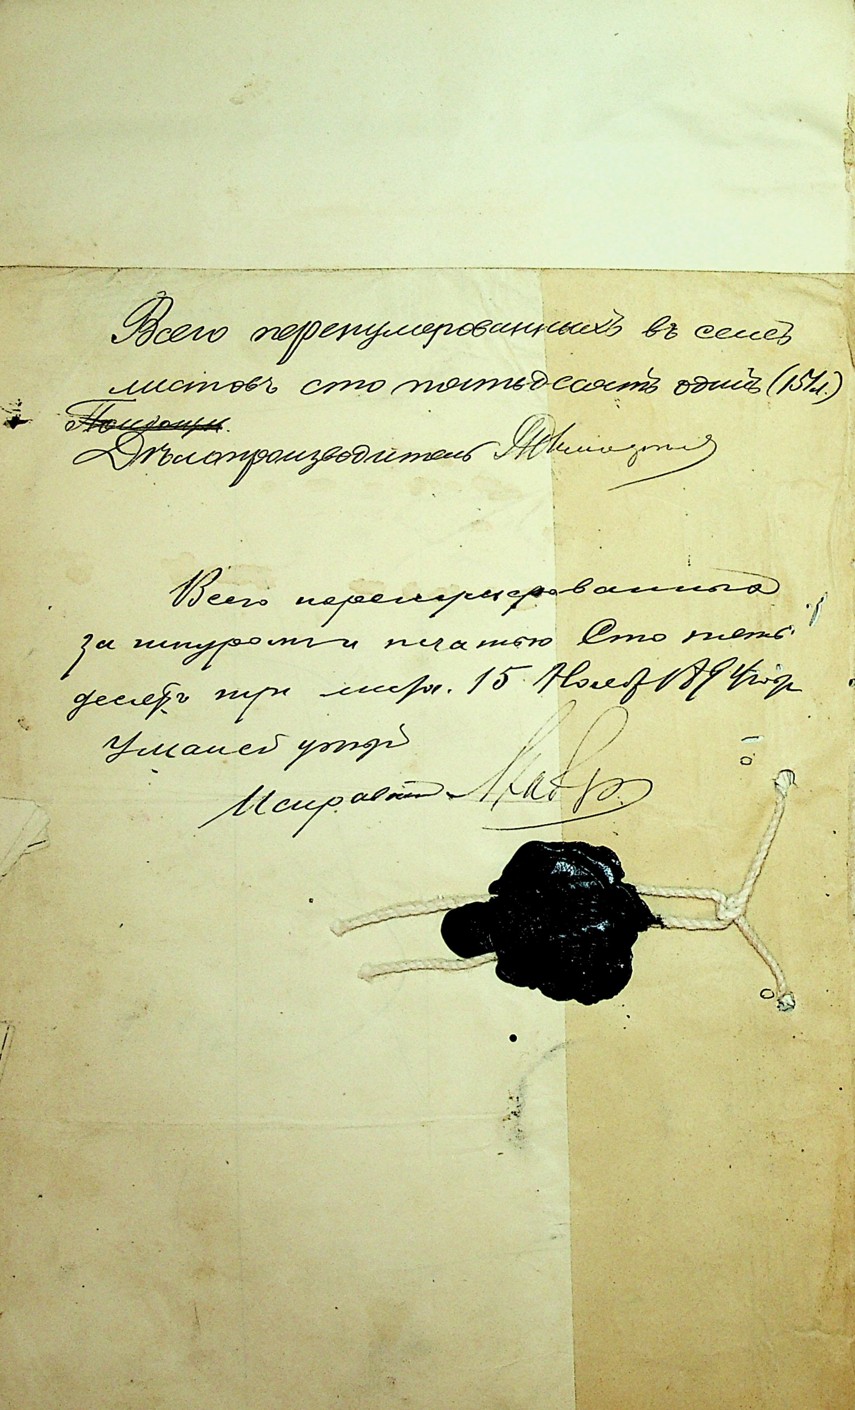 Всего перенумерованныхъ въ семъ
листовъ сто пятьдесятъ одинъ (151л.)
Дѣлопроизводитель
Всего перенумерованныхъ
за шнуромъ и печатью Сто пять
десятъ три листа. 15 Ноября 189
Уманск уѣзд
Исправник